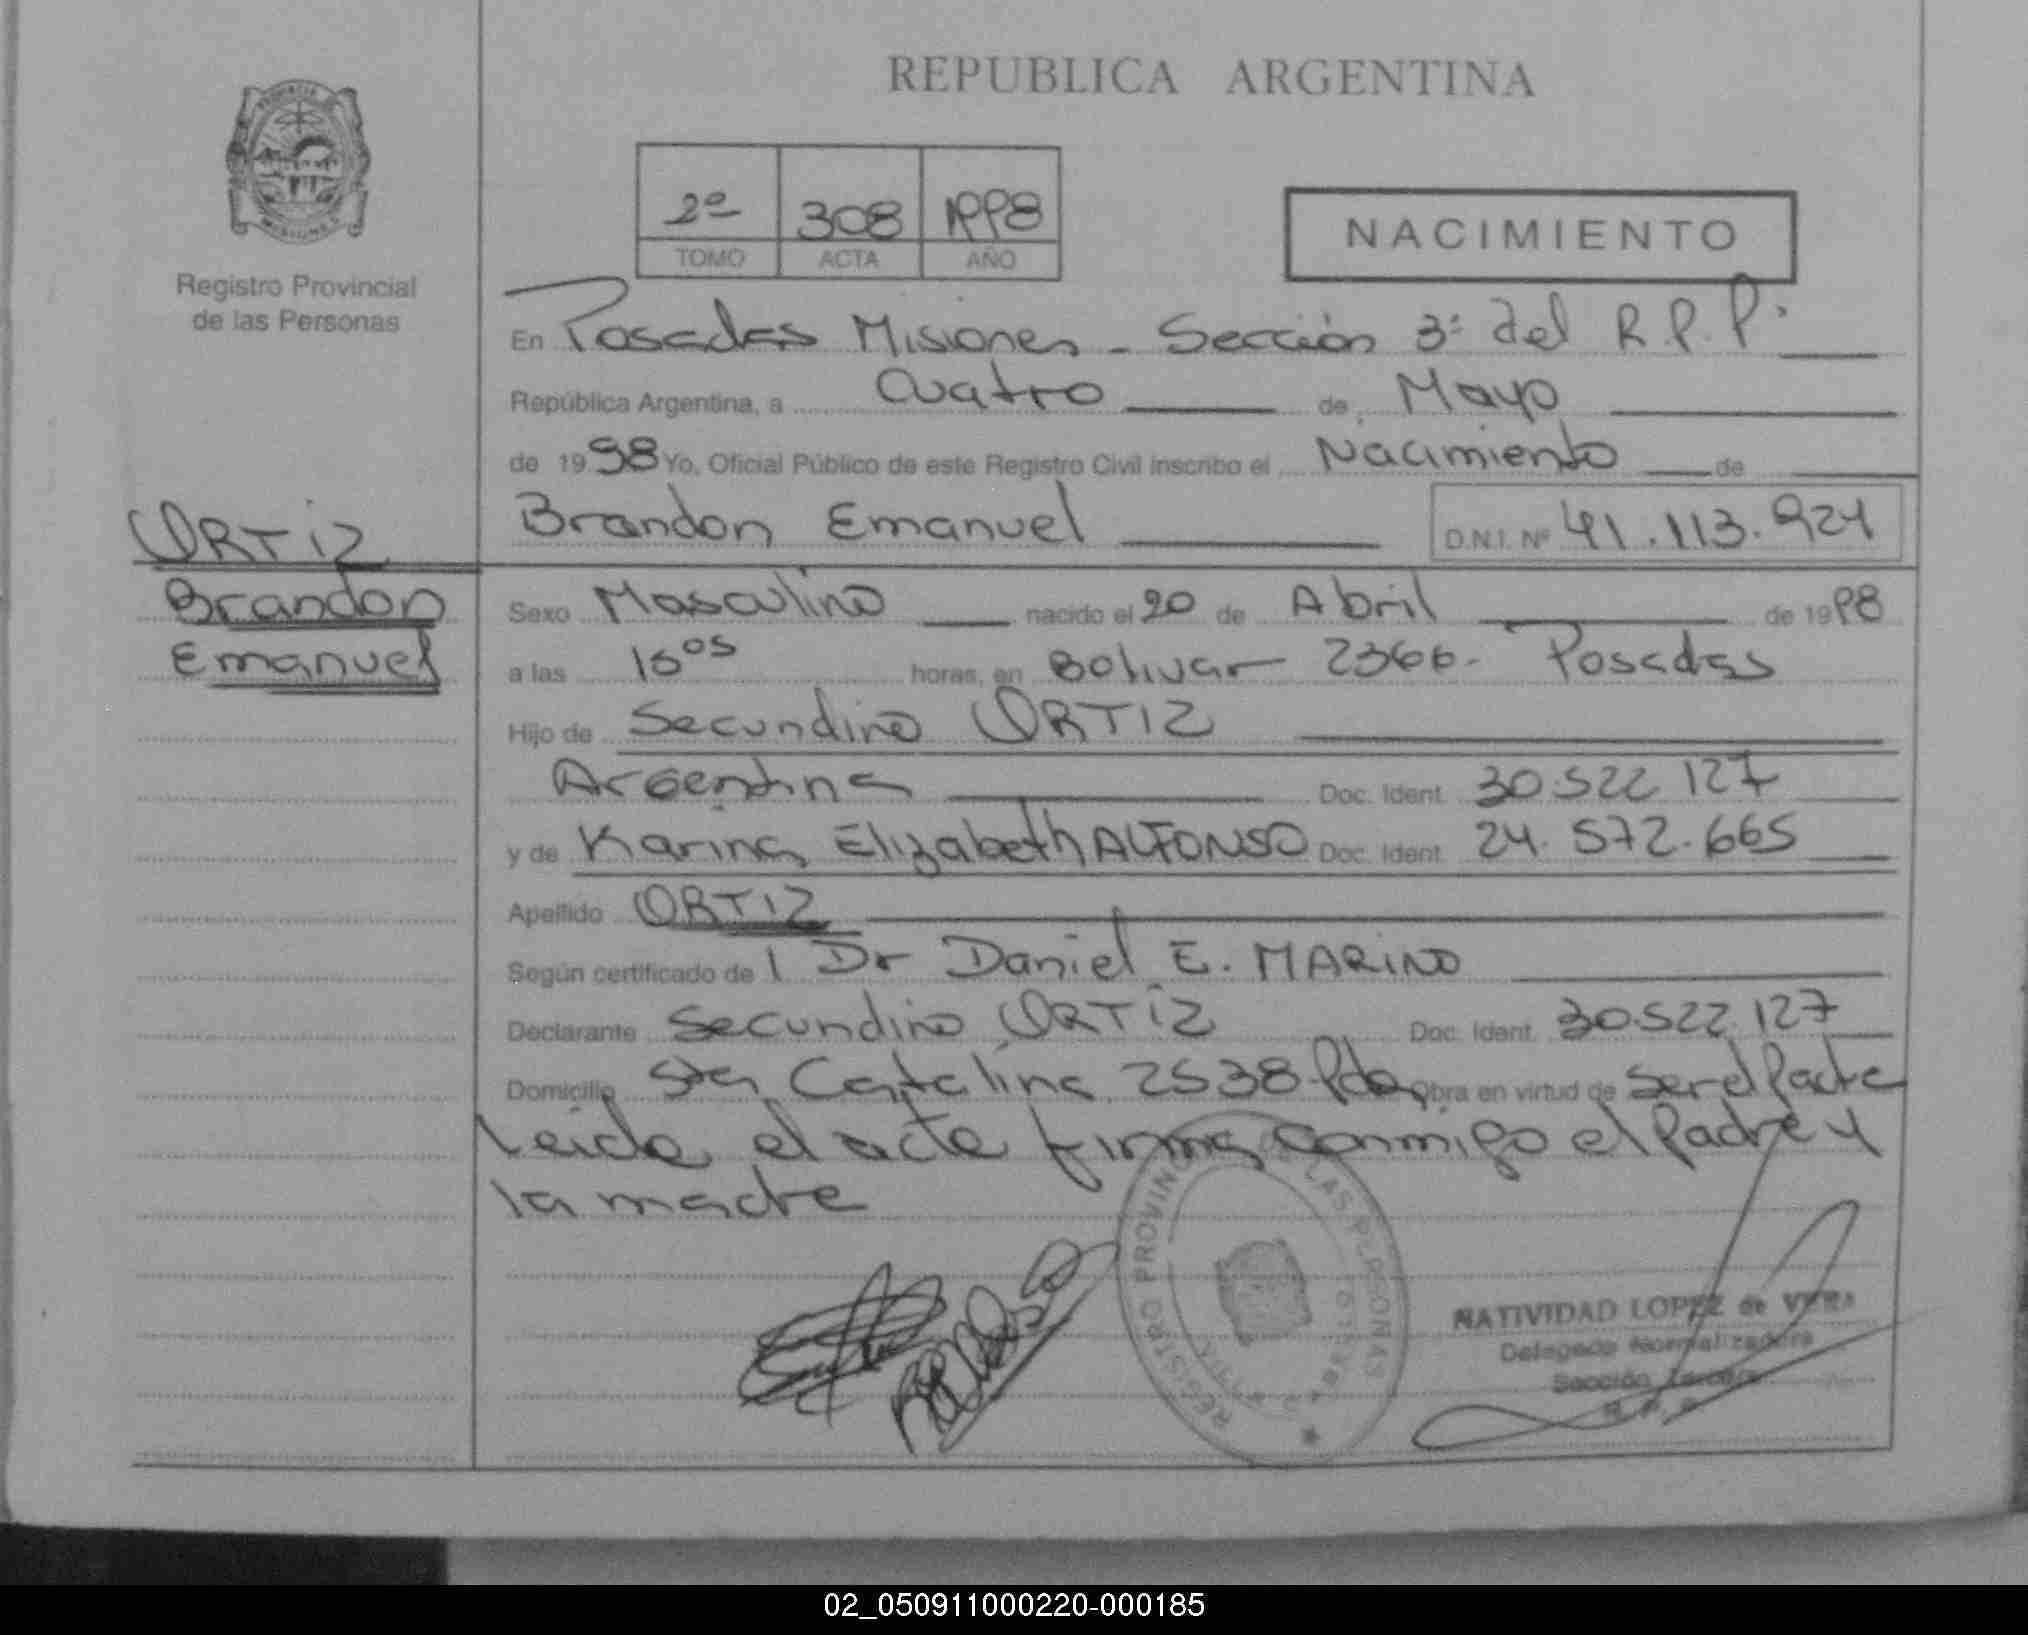 REPUBLICA ARGENTINA
PROVINCIA DE MISIONES
Registro Provincial
de las Personas
2º 308 1998
TOMO ACTA AÑO
NACIMIENTO
En Posadas Misiones - Sección 3ª del R.P.P.
República Argentina, a Cuatro de Mayo
de 1998 Yo, Oficial Público de este Registro Civil inscribo el Nacimiento de
Brandon Emanuel D.N.I. Nº 41.113.924
ORTIZ
Brandon
Emanuel
Sexo Masculino nacido el 20 de Abril de 1998
a las horas, en Bolivar 2366 - Posadas
Hijo de Secundino ORTIZ
Argentina Doc. Ident. 30.522.127
y de Karina Elizabeth ALFONSO Doc. Ident. 24.572.665
Apellido ORTIZ
Según certificado de l Dr Daniel E. MARINO
Declarante Secundino ORTIZ Doc. Ident. 30.522.127
Domicilio Sta Catalina 2538 Pdas Obra en virtud de ser el Padre
Leida el acta firma conmigo el Padre y
la madre
REGISTRO PROVINCIAL DE LAS PERSONAS
NATIVIDAD LOPEZ de VERA
Delegada Normalizadora
Sección Tercera
R. P. P.
02_050911000220-000185